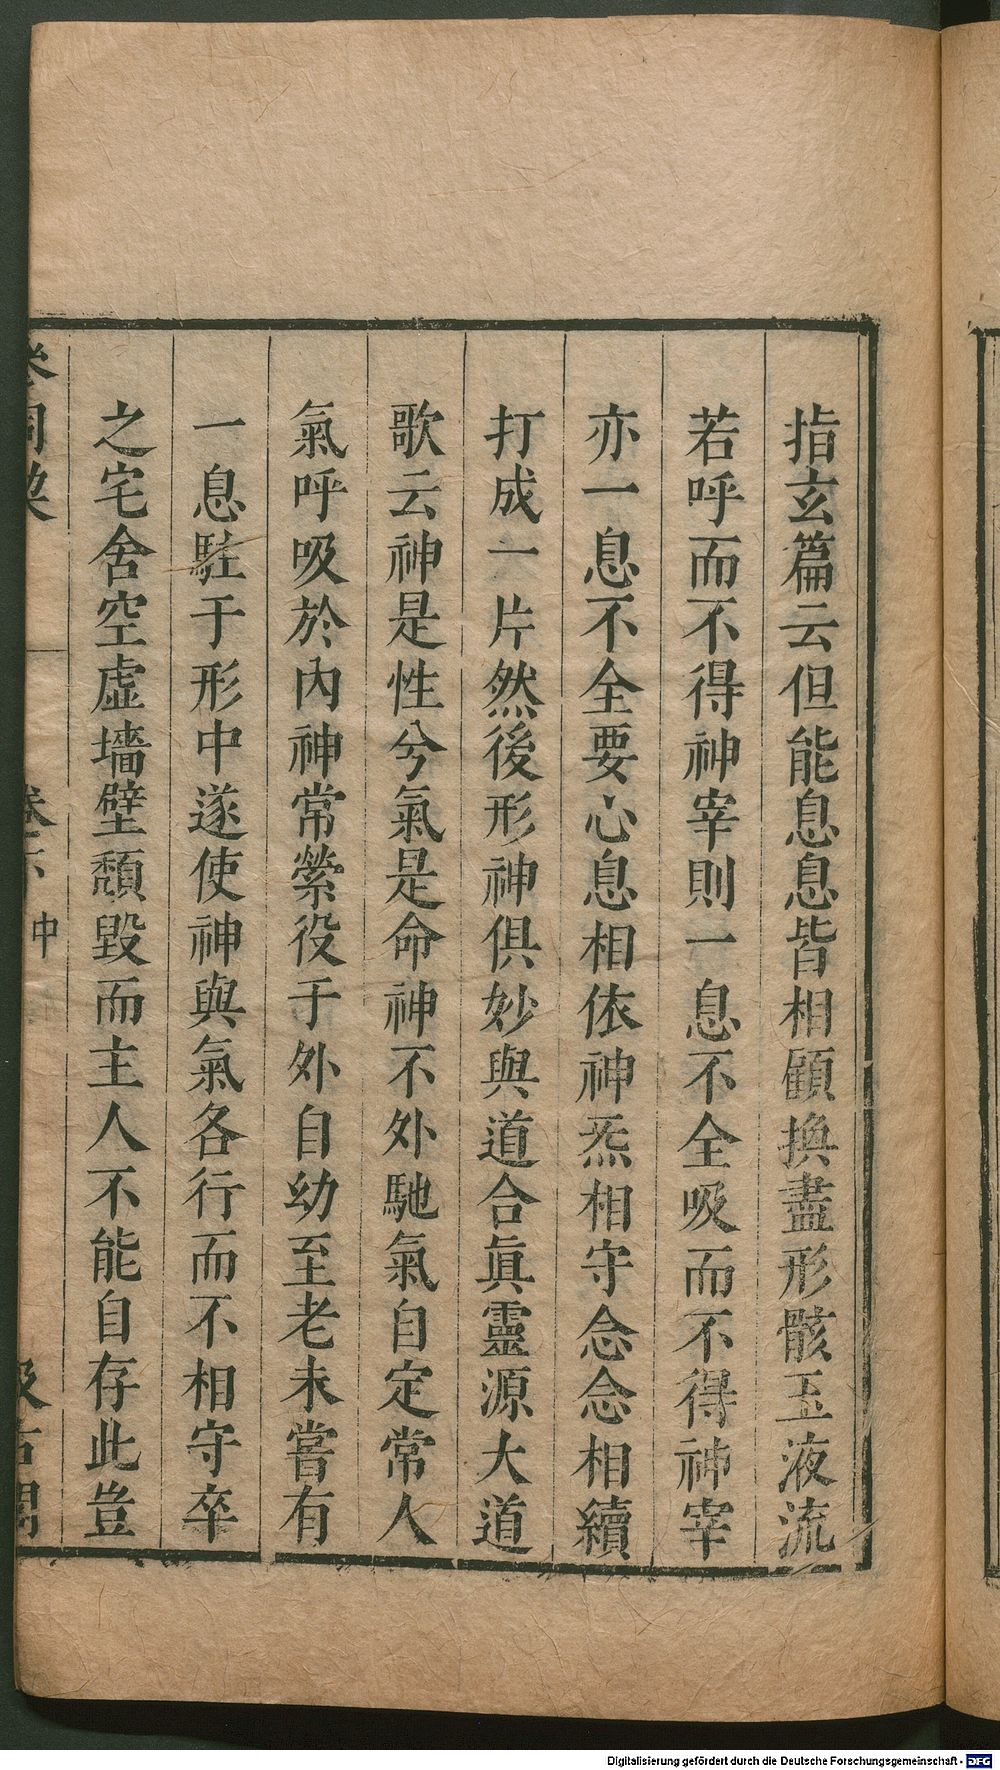 指玄篇云但能息息皆相顧換盡形骸玉液流
若呼而不得神宰則一息不全吸而不得神宰
亦一息不全要心息相依神炁相守念念相續
打成一片然後形神俱妙與道合眞靈源大道
歌云神是性兮氣是命神不外馳氣自定常人
氣呼吸於內神常縈役于外自幼至老未嘗有
一息駐于形中遂使神與氣各行而不相守卒
之宅舍空虛墻壁頹毀而主人不能自存此豈
卷下 中
汲古閣
Digitalisierung gefördert durch die Deutsche Forschungsgemeinschaft - DFG